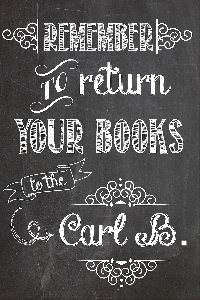 REMEMBER
To return
YOUR BOOKS
to the
Carl B.